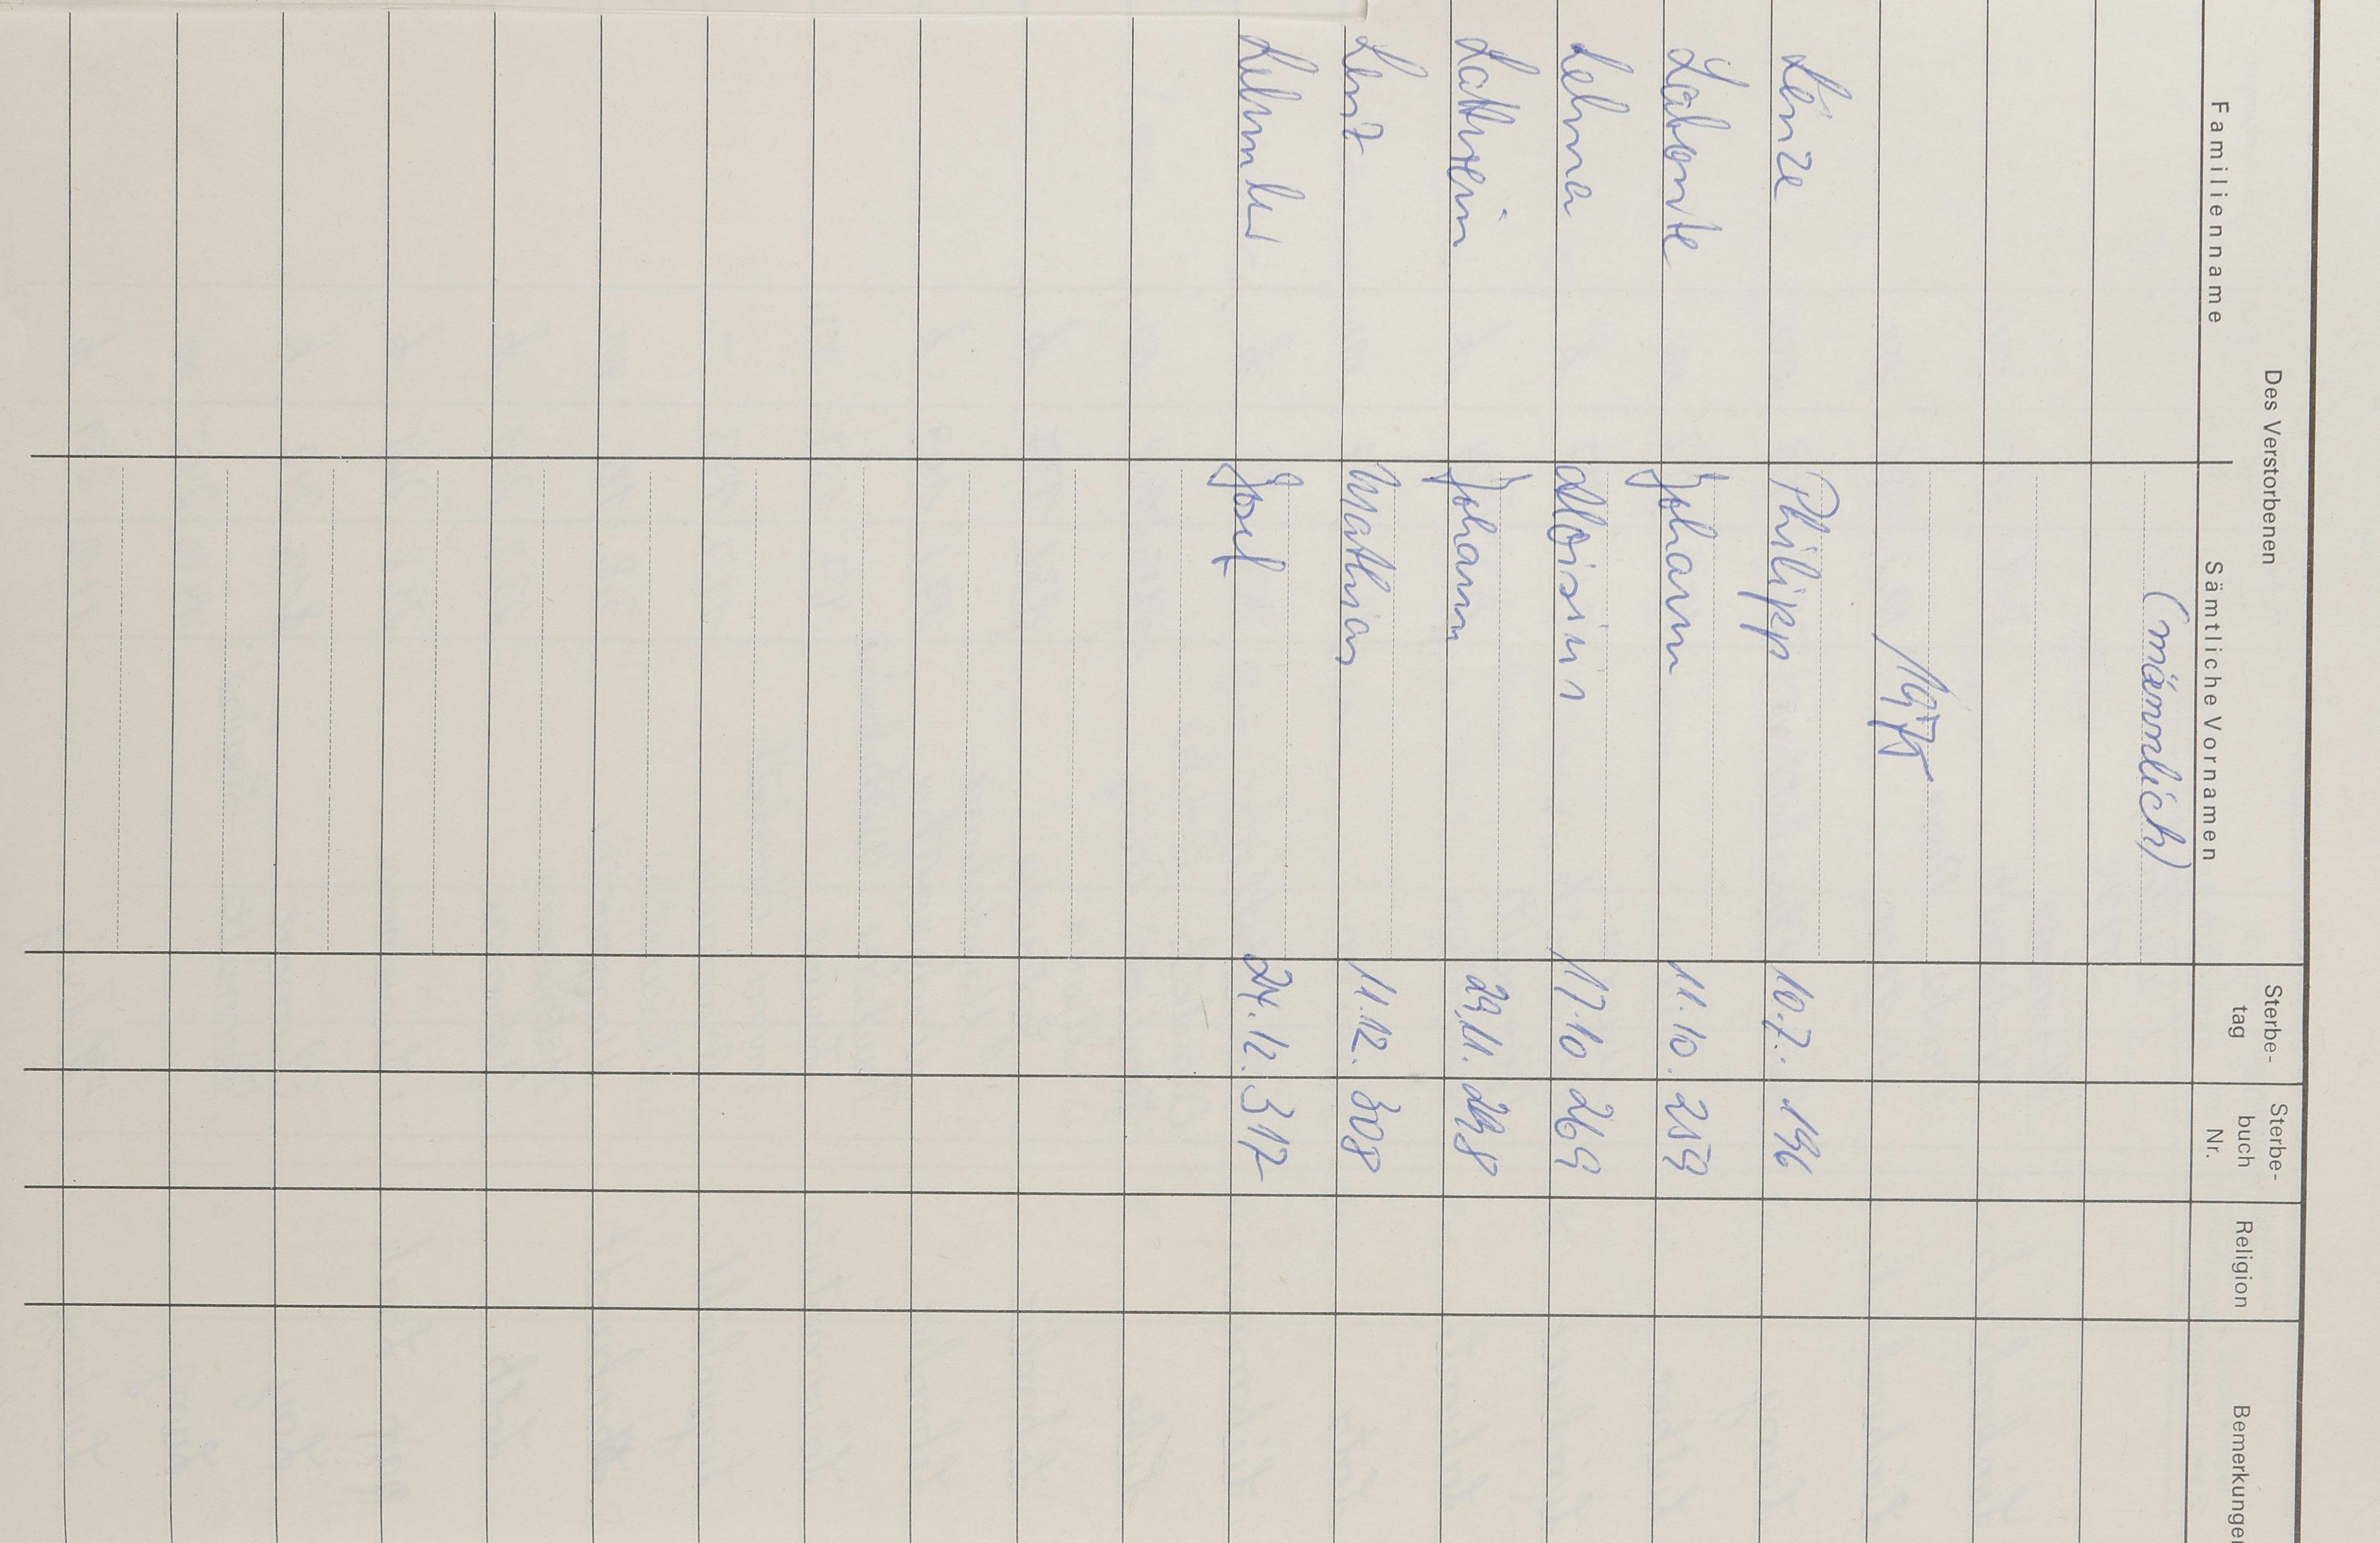 Des Verstorbenen
Familienname Sämtliche Vornamen Sterbe-tag Sterbe-buch Nr. Religion Bemerkungen
(männlich)
1975
Lenze Philipp 10.7. 196
Labonte Johann 11.10. 259
Lehna Aloisius 17.10 269
Lattrein Johann 29.11. 298
Lenz Mathias 11.12. 308
Josef 24.12. 317